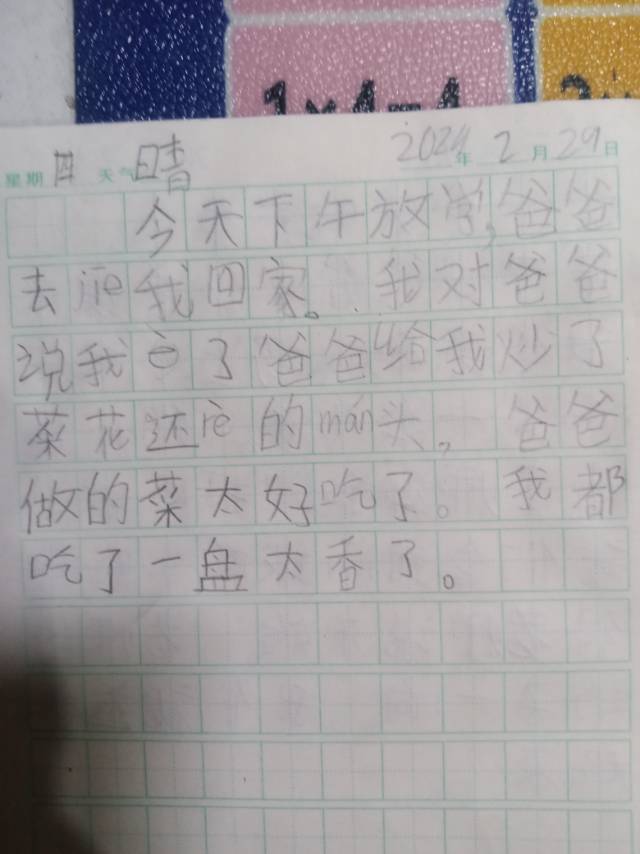 1×4=4
星期 四 天气 晴 2024年 2月29日
今天下午放学,爸爸
去jiē我回家。我对爸爸
说我è了爸爸给我炒了
菜花还rè的mán头,爸爸
做的菜太好吃了。我都
吃了一盘太香了。